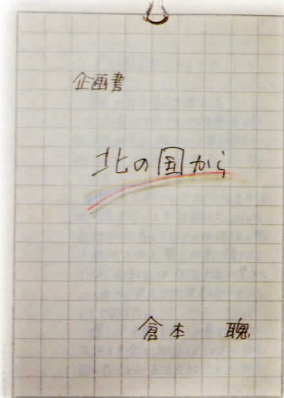 企画書
北の国から
倉本 聰